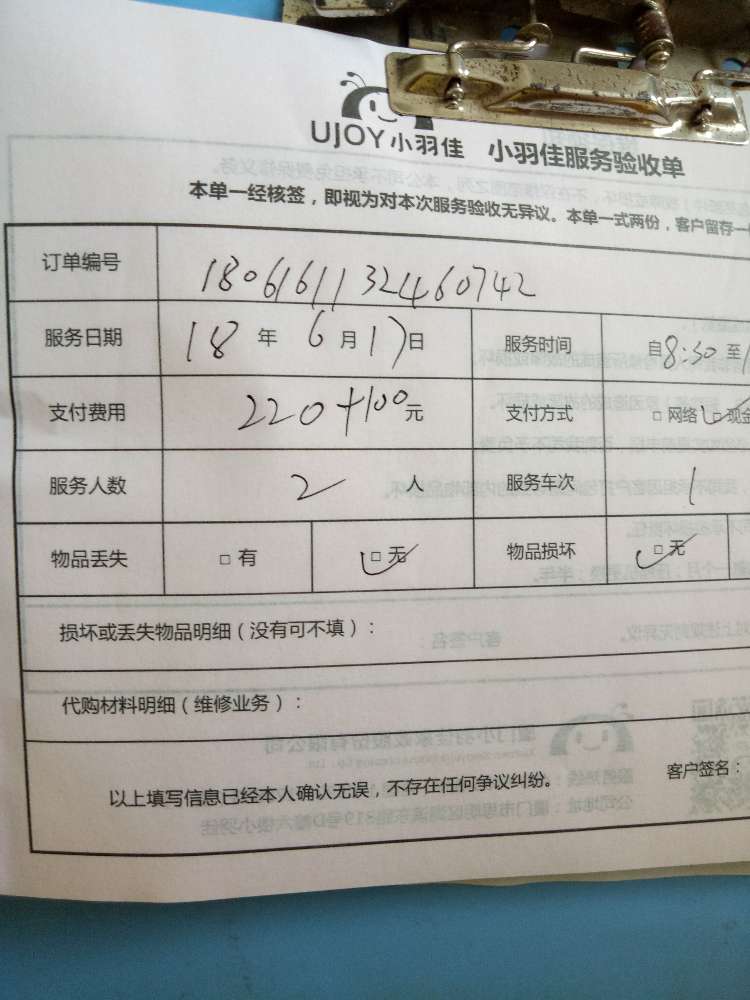 UJOY小羽佳 小羽佳服务验收单
本单一经核签，即视为对本次服务验收无异议。本单一式两份，客户留存一
订单编号 1806161132460742
服务日期 18 年 6 月 17 日 服务时间 自8:30 至1
支付费用 220+100元 支付方式 □ 网络 □ 现金
服务人数 2 人 服务车次 1
物品丢失 □ 有 □ 无 物品损坏 □ 无
损坏或丢失物品明细（没有可不填）：
代购材料明细（维修业务）：
以上填写信息已经本人确认无误，不存在任何争议纠纷。 客户签名：